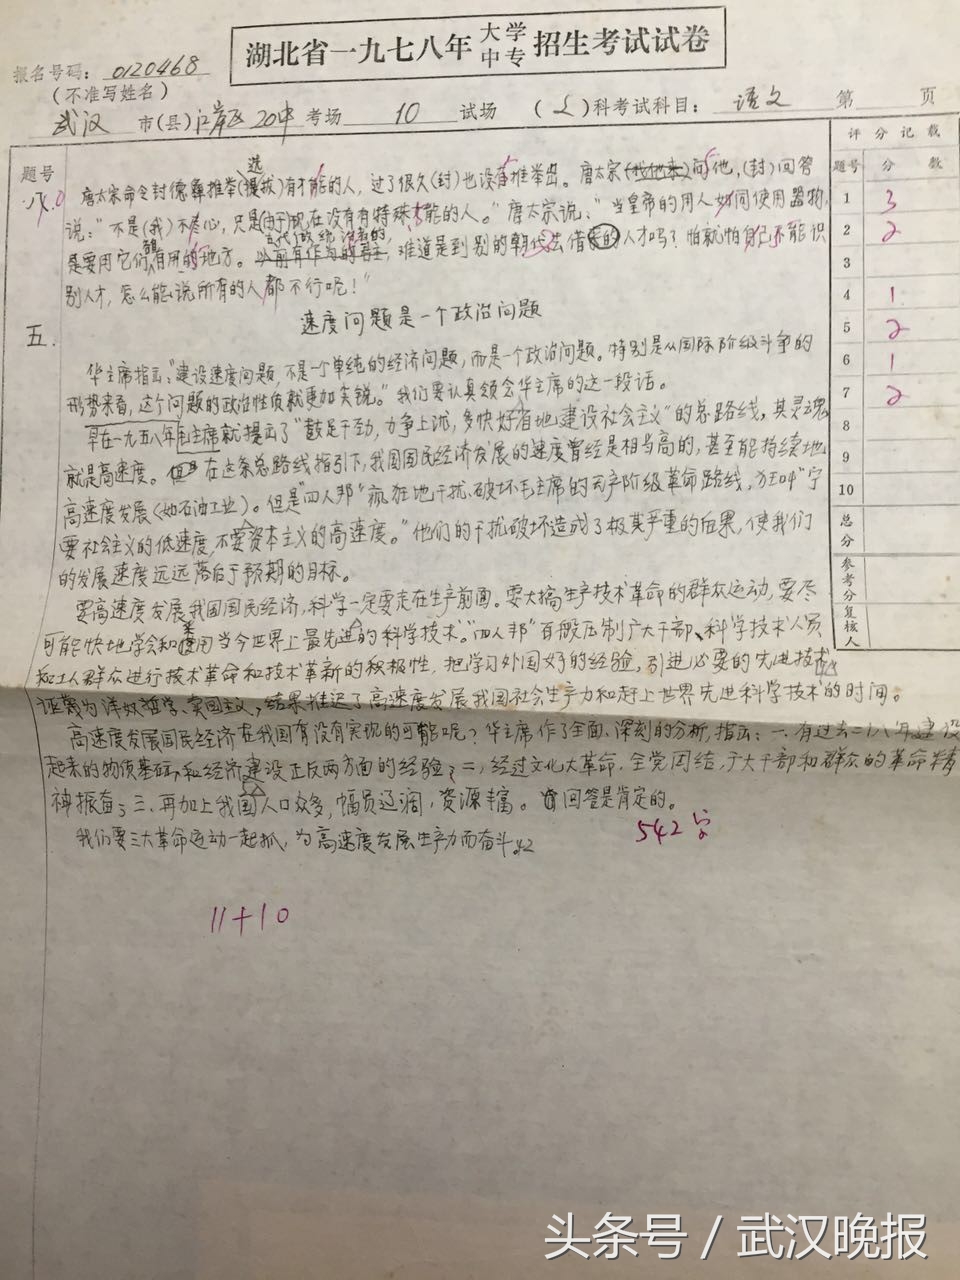 湖北省一九七八年大学中专招生考试试卷
报名号码：0120468
（不准写姓名）
武汉 市(县) 江岸区20中 考场 10 试场 ( 文 )科考试科目： 语文 第 页
题号
评分记载
题号 分数
1 3
2 2
3
4 1
5 2
6 1
7 2
8
9
10
总分
参考分
复核人
选
唐太宗命令封德彝推举(提拔)有才能的人，过了很久(封)也没有推举出。唐太宗问他，(封)回答
说："不是(我)不尽心，只是(由于)现在没有有特殊才能的人。"唐太宗说："当皇帝的用人如同使用器物，
是要用它们有用的地方。难道是到别的朝代去借来的人才吗？怕就怕自己不能识
别人才，怎么能说所有的人都不行呢！"
五. 速度问题是一个政治问题
华主席指出："建设速度问题，不是一个单纯的经济问题，而是一个政治问题。特别是从国际阶级斗争的
形势来看，这个问题的政治性质就更加尖锐。"我们要认真领会华主席的这一段话。
早在一九五八年毛主席就提出了"鼓足干劲，力争上游，多快好省地建设社会主义"的总路线，其灵魂
就是高速度。在这条总路线指引下，我国国民经济发展的速度曾经是相当高的，甚至能持续地
高速度发展(如石油工业)。但是"四人帮"疯狂地干扰破坏毛主席的无产阶级革命路线，狂叫"宁
要社会主义的低速度，不要资本主义的高速度。"他们的干扰破坏造成了极其严重的后果，使我们
的发展速度远远落后于预期的目标。
要高速度发展我国国民经济，科学一定要走在生产前面。要大搞生产技术革命的群众运动，要尽
可能快地学会和采用当今世界上最先进的科学技术。"四人帮"百般压制广大干部、科学技术人员
和工人群众进行技术革命和技术革新的积极性，把学习外国好的经验，引进必要的先进技术
诬蔑为洋奴哲学、卖国主义，结果推迟了高速度发展我国社会生产力和赶上世界先进科学技术的时间。
高速度发展国民经济在我国有没有实现的可能呢？华主席作了全面、深刻的分析，指出：一、有过去二八年建设
起来的物质基础，和经济建设正反两方面的经验；二，经过文化大革命，全党团结，广大干部和群众的革命精
神振奋；三、再加上我国人口众多，幅员辽阔，资源丰富。回答是肯定的。
我们要三大革命运动一起抓，为高速度发展生产力而奋斗。
542字
11+10
头条号／武汉晚报